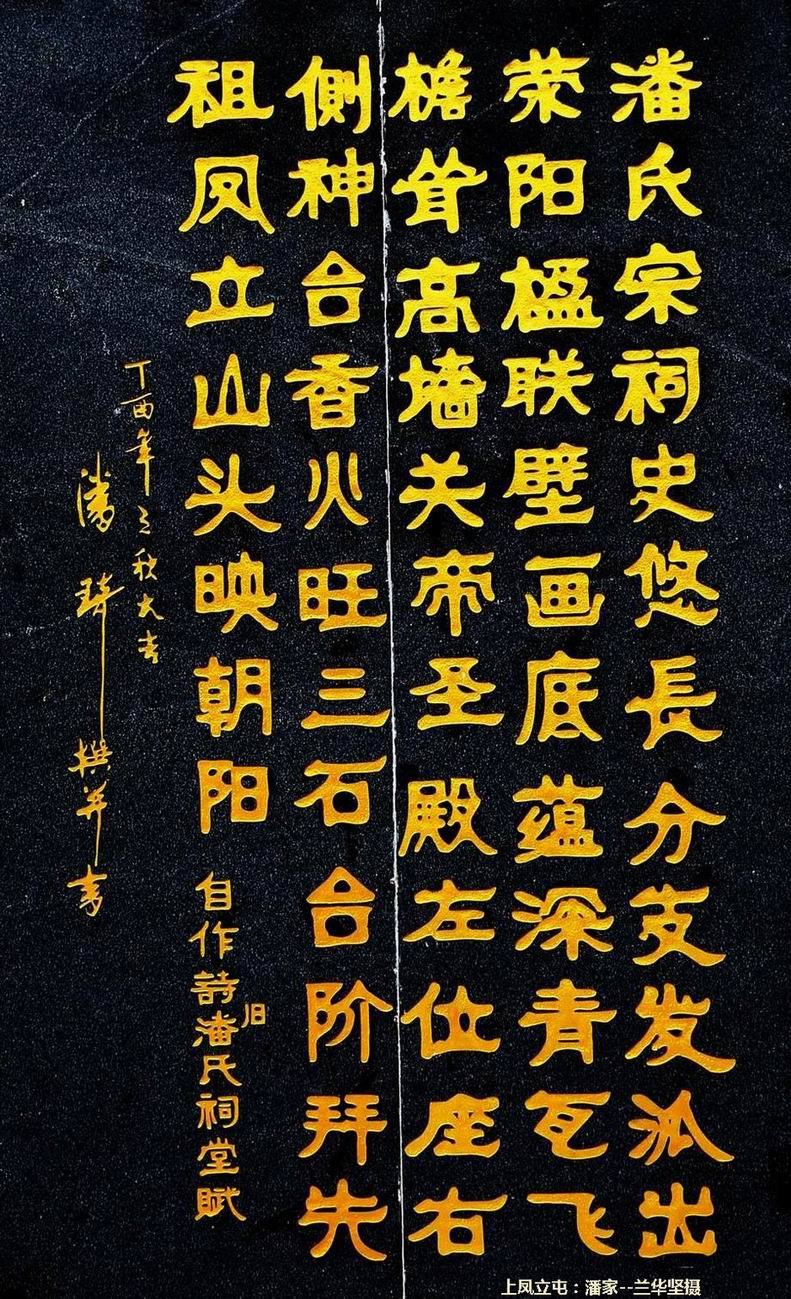 潘氏宗祠史悠長分支发派出
荣阳楹联壁画底蕴深青瓦飞
檐耸高墙关帝圣殿左位座右
侧神台香火旺三石台阶拜先
祖凤立山头映朝阳
自作詩旧潘氏祠堂賦
丁酉年之秋大吉
潘琦撰并书
上凤立屯：潘家--兰华坚摄